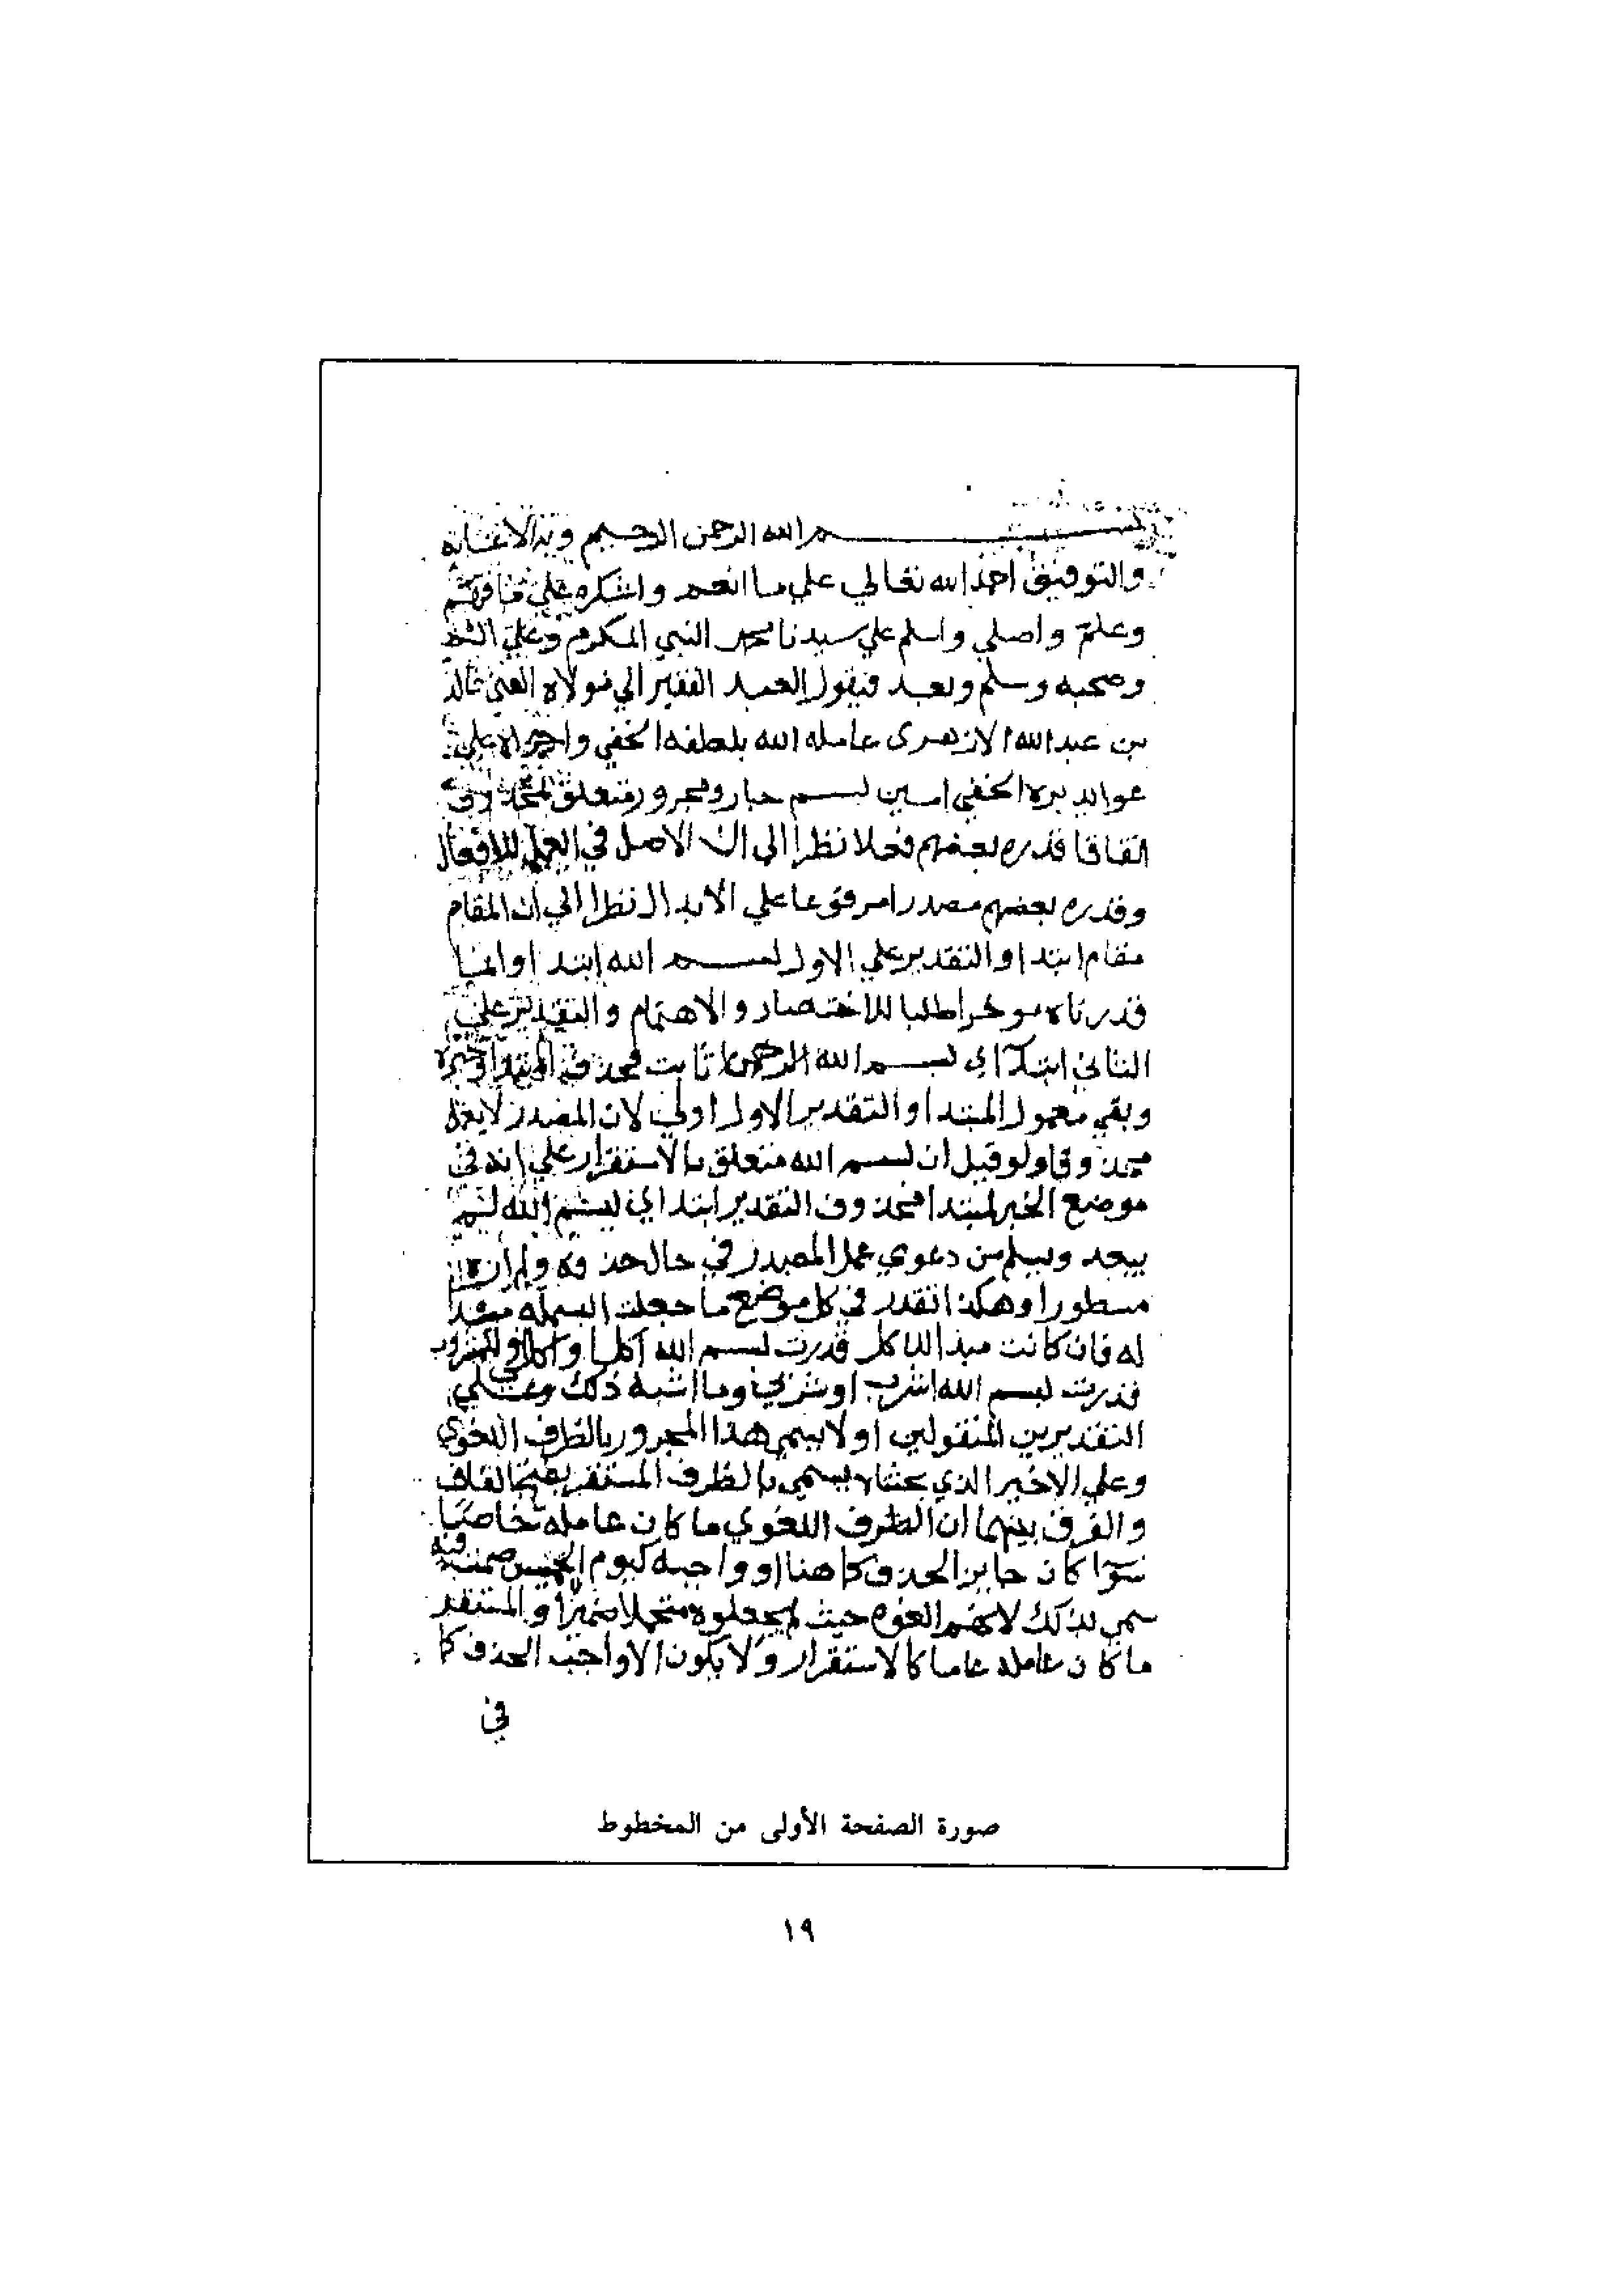 بسم الله الرحمن الرحيم وبه الاعانة
والتوفيق احمد الله تعالي علي ما انعم واشكره علي ما فهم
وعلم واصلي واسلم علي سيدنا محمد النبي المكرم وعلي
وصحبه وسلم وبعد فيقول العبد الفقير الي مولاه الغني خالد
بن عبد الله الازهري عامله الله بلطفه الخفي واجراه علي
عوايد بره الحفي امين بسم جار ومجرور متعلق بمحذوف
اتفاقا قدره بعضهم فعلا نظرا الي ان الاصل في العمل للافعال
وقدره بعضهم مصدرا مرفوعا علي الابتدا نظرا الي ان المقام
مقام ابتدا والتقدير علي الاول بسم الله ابتدا وانما
قدرناه موخرا طلبا للاختصار والاهتمام والتقدير علي
الثاني ابتدآاي بسم الله الرحمن ثابت فحذف المبتدا وخبره
وبقي معمول المبتدا والتقدير الاول اولي لان المصدر لا يعمل
محذوفا ولو قيل ان بسم الله متعلق بالاستقرار علي انه في
موضع الخبر لمبتدا محذوف التقدير ابتداي بسم الله لم
يبعد ويسلم من دعوي عمل المصدر في حال حذفه ولم اره
مسطورا وهكذا تقدر في كل موضع ما جعلت البسملة مبتدا
له فان كانت مبدا للاكل قدرت بسم الله اكل او اكلي وللشروب
قدرت بسم الله اشرب او شربي وما اشبه ذلك وعلي
التقديرين المنقولين اولا يسمي هذا المجرور بالظرف اللغوي
وعلي الاخير الذي بحثناه يسمي بالظرف المستقر بفتح القاف
والفرق بينهما ان الظرف اللغوي ما كان عامله خاصا
سوآ كان جايز الحذف كما هنا او واجبه كيوم الخميس صمت فيه
سمي بذلك لانهم الغوه حيث لم يجعلوه متحملا ضميرا والمستقر
ما كان عامله عاما كالاستقرار ولا يكون الا واجب الحذف كما
في
صورة الصفحة الأولى من المخطوط
١٩